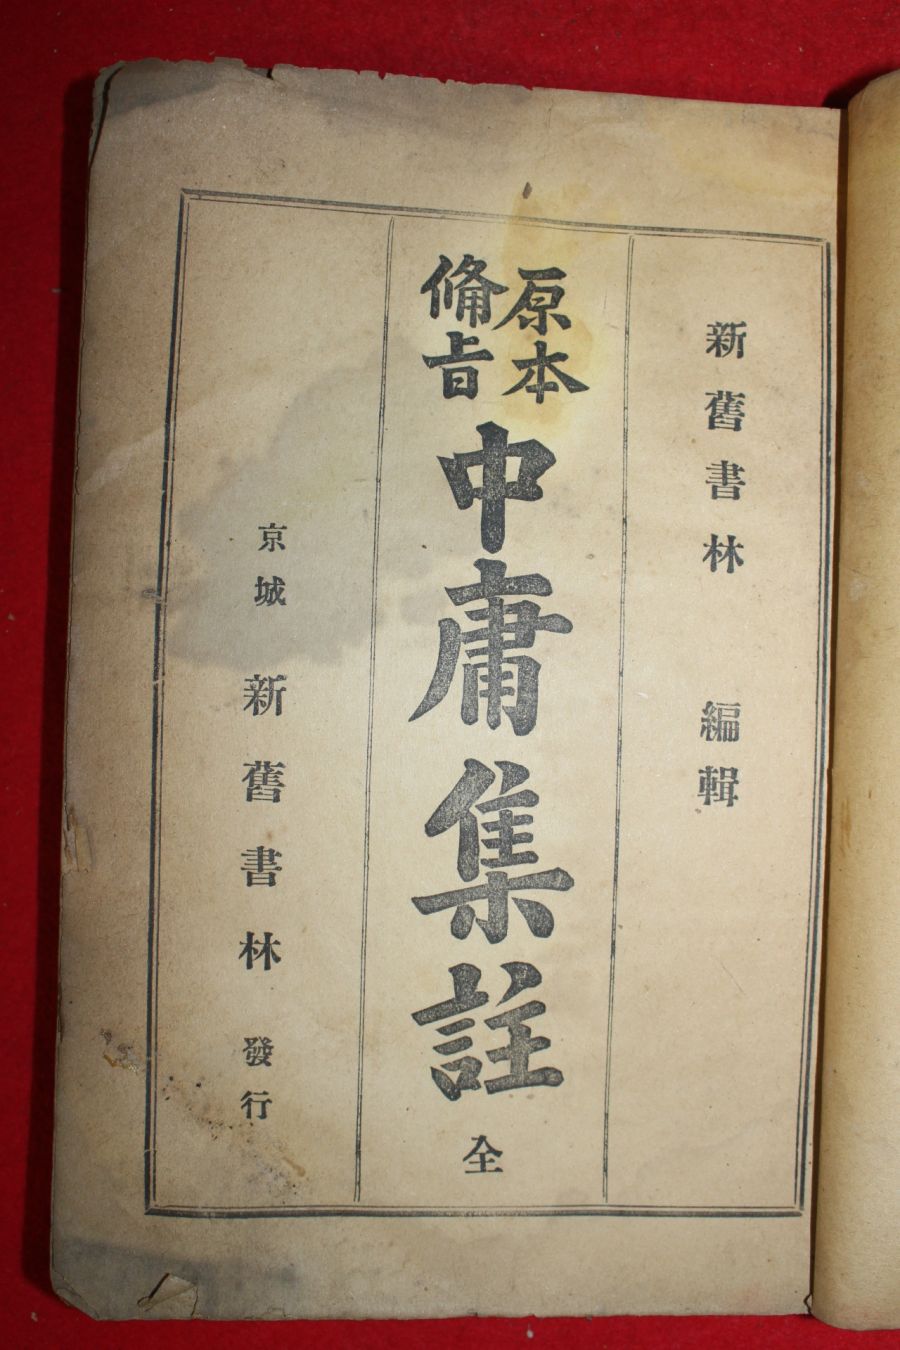 新舊書林 編輯
原本備旨中庸集註 全
京城 新舊書林 發行